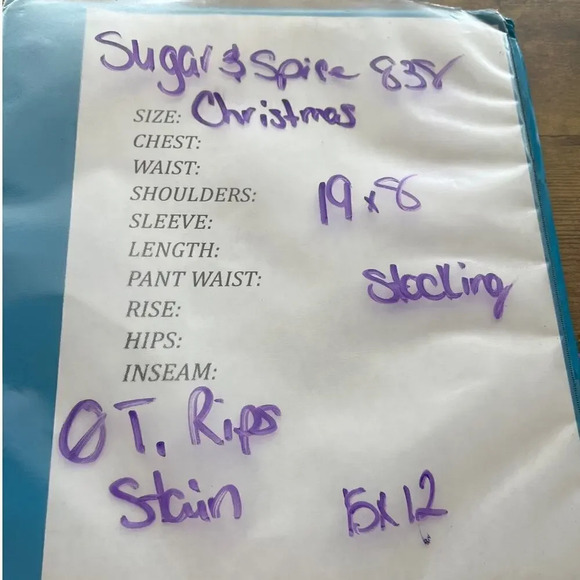 Sugar & Spice 838
SIZE: Christmas
CHEST:
WAIST:
SHOULDERS: 19 x 8
SLEEVE:
LENGTH:
PANT WAIST: Stocking
RISE:
HIPS:
INSEAM:
Ø T. Rips
Stain 15 x 12